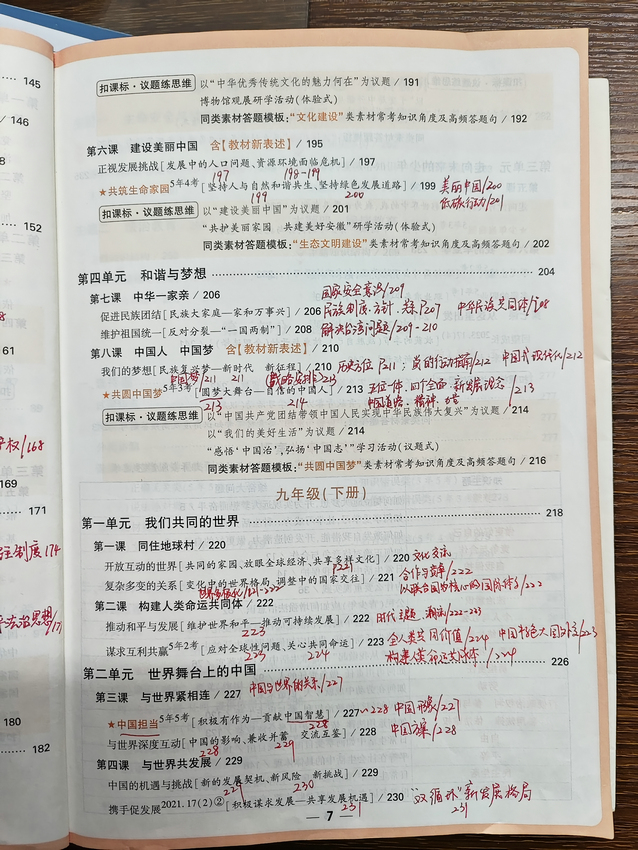 145
146
152
161
产权/168
169
171
主制度174
法治思想/171
180
182
扣课标·议题练思维 以“中华优秀传统文化的魅力何在”为议题 / 191
博物馆观展研学活动(体验式)
同类素材答题模板:“文化建设”类素材常考知识角度及高频答题句 / 192
第六课 建设美丽中国 含【教材新表述】/ 195
正视发展挑战[发展中的人口问题、资源环境面临危机] / 197
197 198-199
★共筑生命家园5年4考[坚持人与自然和谐共生、坚持绿色发展道路] / 199 美丽中国/200
199 200 低碳行动/201
扣课标·议题练思维 以“建设美丽中国”为议题 / 201
“共护美丽家园 共建美好安徽”研学活动(体验式)
同类素材答题模板:“生态文明建设”类素材常考知识角度及高频答题句 / 202
第四单元 和谐与梦想 204
第七课 中华一家亲 / 206 国家安全意识/209
促进民族团结[民族大家庭—家和万事兴] / 206 民族制度、方针、关系P207 中华民族共同体/208
维护祖国统一[反对分裂—“一国两制”] / 208 解决台湾问题/209-210
第八课 中国人 中国梦 含【教材新表述】/ 210
我们的梦想[民族复兴梦—新时代 新征程] / 210 历史方位P211; 党的行动指南/212 中国式现代化/212
中国梦/211 211 (战略安排)213
★共圆中国梦5年3考[圆梦大舞台—自信的中国人] / 213 五位一体、四个全面、新发展理念 /213
213 214 中国道路、精神、力量
扣课标·议题练思维 以“中国共产党团结带领中国人民实现中华民族伟大复兴”为议题 / 214
以“我们的美好生活”为议题 / 214
“感悟‘中国治’,弘扬‘中国志’”学习活动(议题式)
同类素材答题模板:“共圆中国梦”类素材常考知识角度及高频答题句 / 216
九年级(下册)
第一单元 我们共同的世界 218
第一课 同住地球村 / 220
开放互动的世界[共同的家园、放眼全球经济、共享多样文化] / 220 文化交流
P221
复杂多变的关系[变化中的世界格局、调整中的国家交往] / 221 合作与竞争/222
以联合国为核心的国际体系/222
第二课 构建人类命运共同体 / 222
推动和平与发展[维护世界和平—推动可持续发展] / 222 时代主题、潮流/222-223
223
谋求互利共赢5年2考[应对全球性问题、关心共同命运] / 223 全人类共同价值/224 中国特色大国外交/223
223 224 构建人类命运共同体/224
第二单元 世界舞台上的中国 226
第三课 与世界紧相连 / 227 中国与世界的关系/227
★中国担当5年5考[积极有作为—贡献中国智慧] / 227~228 中国形象/227
228
与世界深度互动[中国的影响、兼收并蓄 交流互鉴] / 228 中国方案/228
228 229
第四课 与世界共发展 / 229
中国的机遇与挑战[新的发展契机、新风险 新挑战] / 229
229 230
携手促发展2021.17(2)②[积极谋求发展—共享发展机遇] / 230 “双循环”新发展格局
231 231
— 7 —